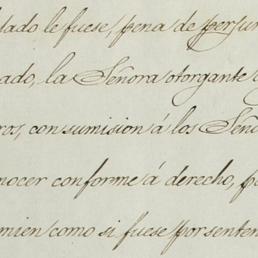 dado le fuese, pena de perjur
ado, la Señora otorgante
ros, con sumision á los Señ
nocer conforme á derecho, p
mien como si fuese por senten